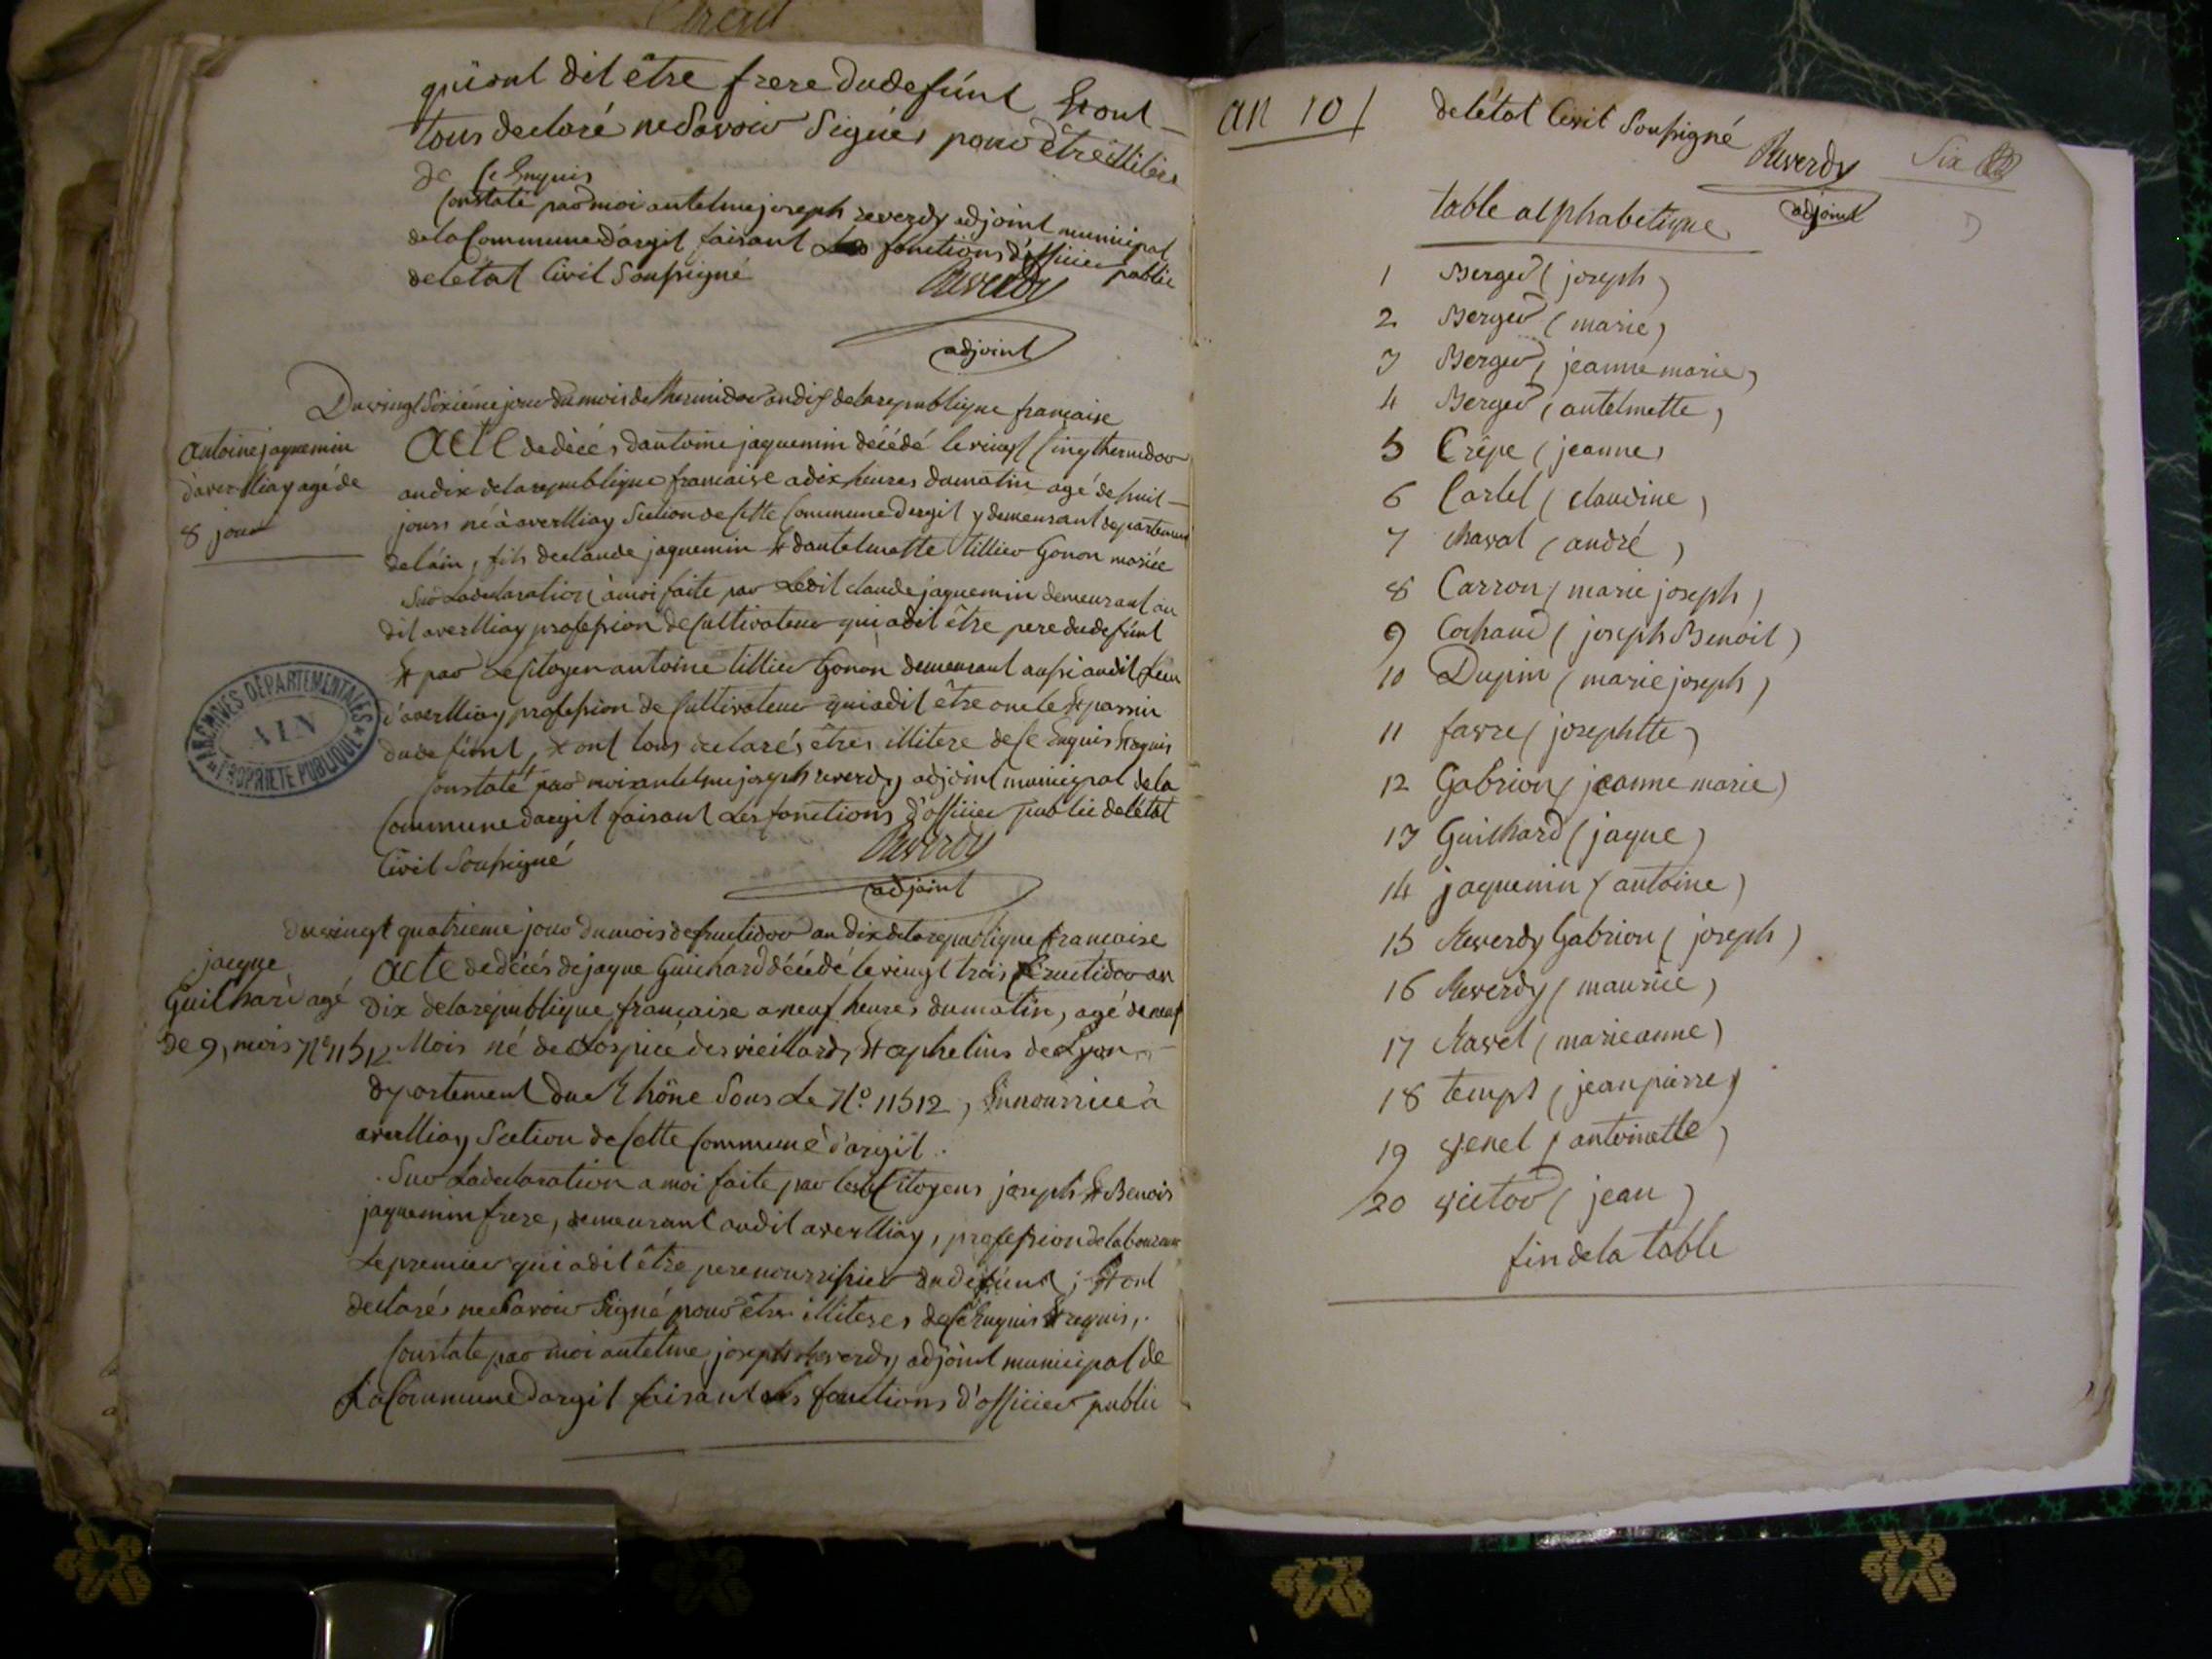 qui ont dit être frere dudefúnt Et ont
tous declaré ne Savoir Signés pour être illitére
de Ce Enquis
Constaté par moi antelme joseph reverdy adjoint municipal
de la Commune d'argit faisant Les fonctions d'officier public
de l'état Civil Soussigné
Reverdy
adjoint
Du vingt Sixième jour du mois de thermidor an dix de la republique française
antoine jaquemin
d'averlliay agé de
8 jour
acte de décés d'antoine jaquemin décédé le vingt Cinq thermidor
an dix de la republique française a dix heures du matin agé de huit
jours né à averlliay Section de Cette Commune d'argit y demeurant departement
de láin, fils de claude jaquemin Et d'antelmette tillier Gonon mariée
Sur La declaration à moi faite par Ledit claude jaquemin demeurant au
dit averlliay profession de Cultivateur qui a dit être pere dudefúnt
Et par Le Citoyen antoine tillier Gonon demeurant aussi audit Lieu
d'averlliay profession de Cultivateur qui a dit être oncle Et parrin
dudefúnt, Et ont tous declarés êtres illitere de Ce Enquis Et requis
Constaté par moi antelme joseph reverdy adjoint municipal de la
Commune d'argit faisant Les fonctions d'officier public de l'état
Civil Soussigné
Reverdy
adjoint
ARCHIVES DÉPARTEMENTALES
AIN
PROPRIÉTÉ PUBLIQUE
du vingt quatrieme jour du mois de fructidor an dix de la republique francaise
jacque
Guilhard agé
de 9, mois N° 11512
acte de décés de jaque Guichard décédé le vingt trois Fructidor an
Dix de la république française a neuf heures du matin, agé de neuf
Mois né de Lospice des vieillards Et orphelins de Lyon
departement du Rhône Sous Le N° 11512, En nourrice à
averlliay Section de Cette Commune d'argit.
Sur La declaration a moi faite par les Citoyens joseph Et Benoit
jaquemin frere, demeurant audit averlliay, profession de laboureur
Le premier qui a dit être pere nourrissier dudefúnt; Et ont
declarés ne Savoir Signé pour être illiteres de Ce Enquis Et requis,
Constaté par moi antelme joseph Reverdy adjoint municipal de
La Commune d'argit faisant Les fonctions d'officier public
an 10
de l'état Civil Soussigné
Reverdy
adjoint
Six
table alphabetique
1 Berger (joseph)
2 Berger (marie)
3 Berger (jeanne marie)
4 Berger (antelmette)
5 Crêpe (jeanne)
6 Cartel (claudine)
7 Chaval (andré)
8 Carron (marie joseph)
9 Cochaud (joseph Benoit)
10 Dupin (marie joseph)
11 favre (josephtte)
12 Gabrion (jeanne marie)
13 Guilhard (jaque)
14 jaquemin (antoine)
15 Reverdy Gabrion (joseph)
16 Reverdy (maurice)
17 Ravet (marieanne)
18 temps (jean pierre)
19 venel (antoinette)
20 victor (jean)
fin de la table